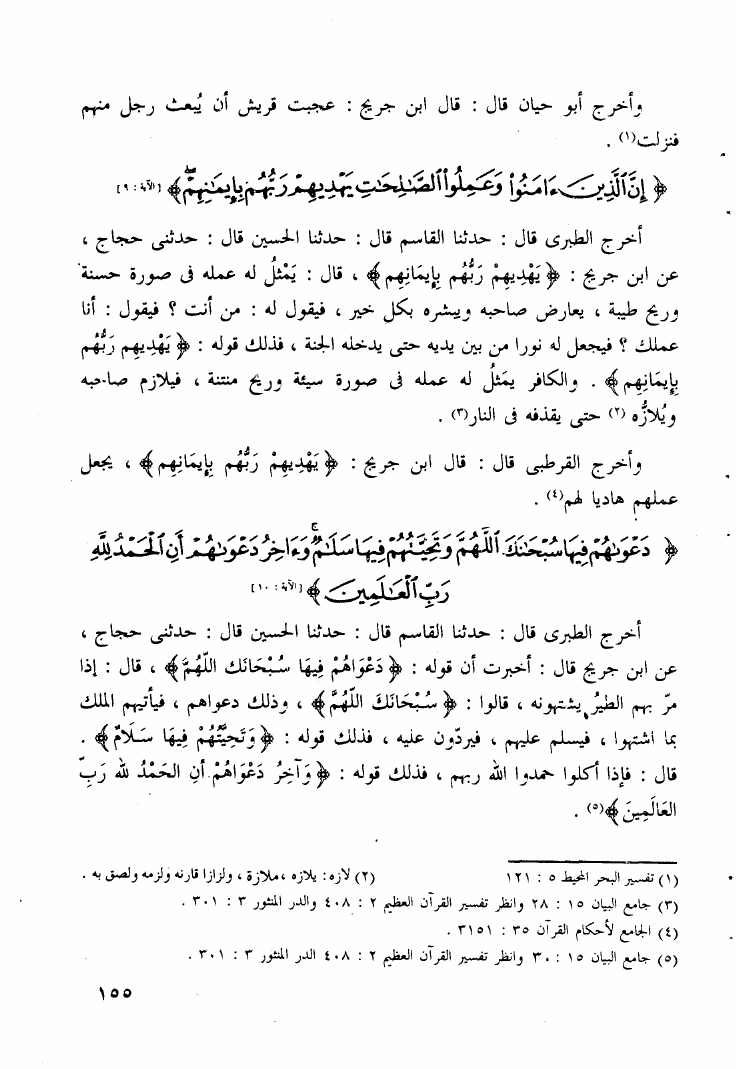 وأخرج أبو حيان قال : قال ابن جريج : عجبت قريش أن يُبعث رجل منهم
فنزلت(١) .
﴿ إِنَّ ٱلَّذِينَ ءَامَنُوا۟ وَعَمِلُوا۟ ٱلصَّـٰلِحَـٰتِ يَهْدِيهِمْ رَبُّهُم بِإِيمَـٰنِهِمْ ۖ ﴾ [الآية : ٩]
أخرج الطبرى قال : حدثنا القاسم قال : حدثنا الحسين قال : حدثنى حجاج ،
عن ابن جريج : ﴿ يَهْدِيهِمْ رَبُّهُم بِإِيمَانِهِم ﴾ ، قال : يَمْثلُ له عمله فى صورة حسنة
وريح طيبة ، يعارض صاحبه ويبشره بكل خير ، فيقول له : من أنت ؟ فيقول : أنا
عملك ؟ فيجعل له نورا من بين يديه حتى يدخله الجنة ، فذلك قوله : ﴿ يَهْدِيهم رَبُّهُم
بِإيمَانِهِم ﴾ . والكافر يمَثلُ له عمله فى صورة سيئة وريح منتنة ، فيلازم صاحبه
ويُلازُّه (٢) حتى يقذفه فى النار(٣) .
وأخرج القرطبى قال : قال ابن جريج : ﴿ يَهْدِيهِمْ رَبُّهُم بِإيمَانِهِم ﴾ ، يجعل
عملهم هاديا لهم(٤) .
﴿ دَعْوَىٰهُمْ فِيهَا سُبْحَـٰنَكَ ٱللَّهُمَّ وَتَحِيَّتُهُمْ فِيهَا سَلَـٰمٌ ۚ وَءَاخِرُ دَعْوَىٰهُمْ أَنِ ٱلْحَمْدُ لِلَّهِ
رَبِّ ٱلْعَـٰلَمِينَ ﴾ [الآية : ١٠]
أخرج الطبرى قال : حدثنا القاسم قال : حدثنا الحسين قال : حدثنى حجاج ،
عن ابن جريج قال : أخبرت أن قوله : ﴿ دَعْوَاهُمْ فِيهَا سُبْحَانَك اللّهُمَّ ﴾ ، قال : إذا
مرّ بهم الطيرُ يشتهونه ، قالوا : ﴿ سُبْحَانَكَ اللّهُمَّ ﴾ ، وذلك دعواهم ، فيأتيهم الملك
بما اشتهوا ، فيسلم عليهم ، فيردّون عليه ، فذلك قوله : ﴿ وَتَحِيَّتُهُمْ فِيهَا سَلَامٌ ﴾ .
قال : فإذا أكلوا حمدوا الله ربهم ، فذلك قوله : ﴿ وَآخِرُ دَعْوَاهُمْ أنِ الحَمْدُ لله رَبِّ
العَالَمِينَ ﴾(٥) .
(١) تفسير البحر المحيط ٥ : ١٢١ (٢) لازه : يلازه ، ملازة ، ولزازا قارنه ولزمه ولصق به .
(٣) جامع البيان ١٥ : ٢٨ وانظر تفسير القرآن العظيم ٢ : ٤٠٨ والدر المنثور ٣ : ٣٠١ .
(٤) الجامع لأحكام القرآن ٣٥ : ٣١٥١ .
(٥) جامع البيان ١٥ : ٣٠ وانظر تفسير القرآن العظيم ٢ : ٤٠٨ الدر المنثور ٣ : ٣٠١ .
١٥٥